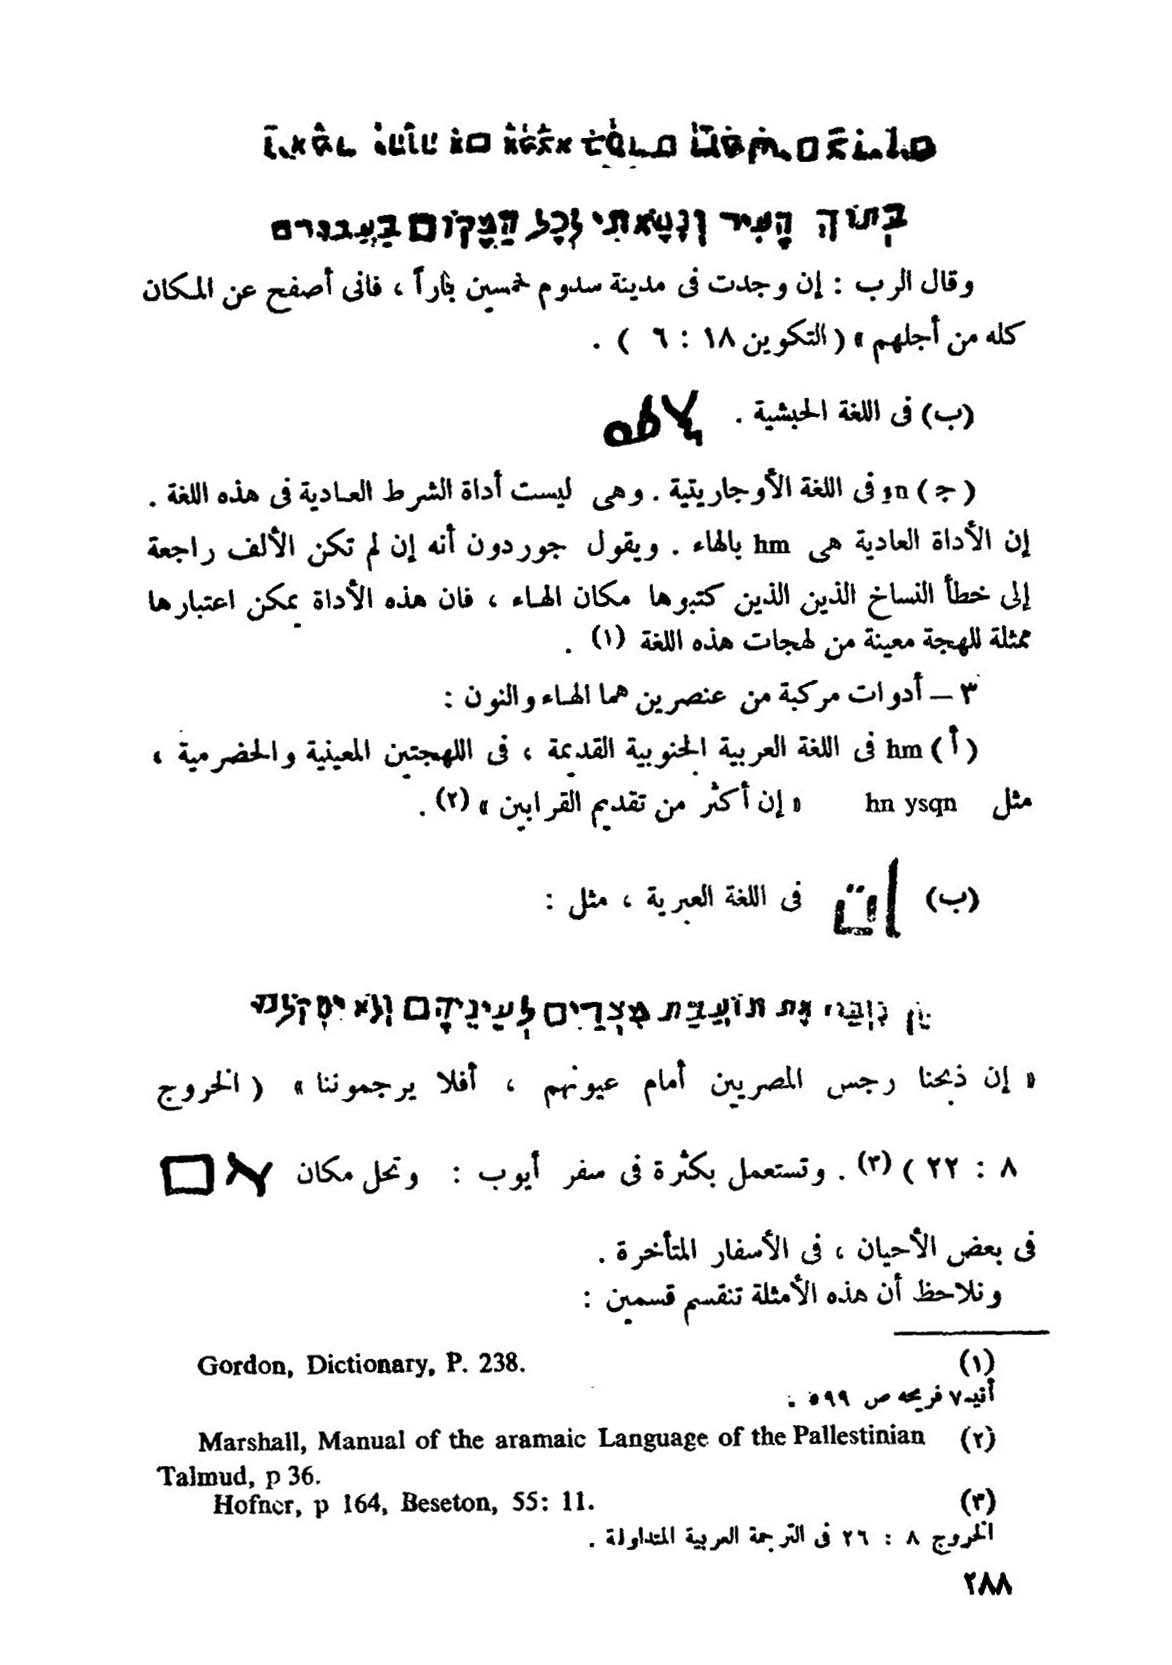 בְּתוֹךְ הָעִיר וְנָשָׂאתִי לְכָל הַמָּקוֹם בַּעֲבוּרָם
وقال الرب : إن وجدت فى مدينة سدوم خمسين باراً ، فانى أصفح عن المكان
كله من أجلهم » ( التكوين ١٨ : ٦ ) .
(ب) فى اللغة الحبشية .
( ج ) فى اللغة الأوجاريتية . وهى ليست أداة الشرط العادية فى هذه اللغة .
إن الأداة العادية هى hm بالهاء . ويقول جوردون أنه إن لم تكن الألف راجعة
إلى خطأ النساخ الذين الذين كتبوها مكان الهاء ، فان هذه الأداة يمكن اعتبارها
ممثلة للهجة معينة من لهجات هذه اللغة (١) .
٣ — أدوات مركبة من عنصرين هما الهاء والنون :
( أ ) hm فى اللغة العربية الجنوبية القديمة ، فى اللهجتين المعينية والحضرمية ،
مثل hn ysqn « إن أكثر من تقديم القرابين » (٢) .
(ب) فى اللغة العبرية ، مثل :
אֶת תּוֹעֲבַת מִצְרַיִם לְעֵינֵיהֶם וְלֹא
« إن ذبحنا رجس المصريين أمام عيونهم ، أفلا يرجموننا » ( الخروج
٨ : ٢٢ ) (٣) . وتستعمل بكثرة فى سفر أيوب : وتحل مكان אם
فى بعض الأحيان ، فى الأسفار المتأخرة .
ونلاحظ أن هذه الأمثلة تنقسم قسمين :
(١) Gordon, Dictionary, P. 238.
فريحه ص ٥٩٩ .
(٢) Marshall, Manual of the aramaic Language of the Pallestinian
Talmud, p 36.
(٣) Hofner, p 164, Beseton, 55: 11.
الخروج ٨ : ٢٦ فى الترجمة العربية المتداولة .
٢٨٨